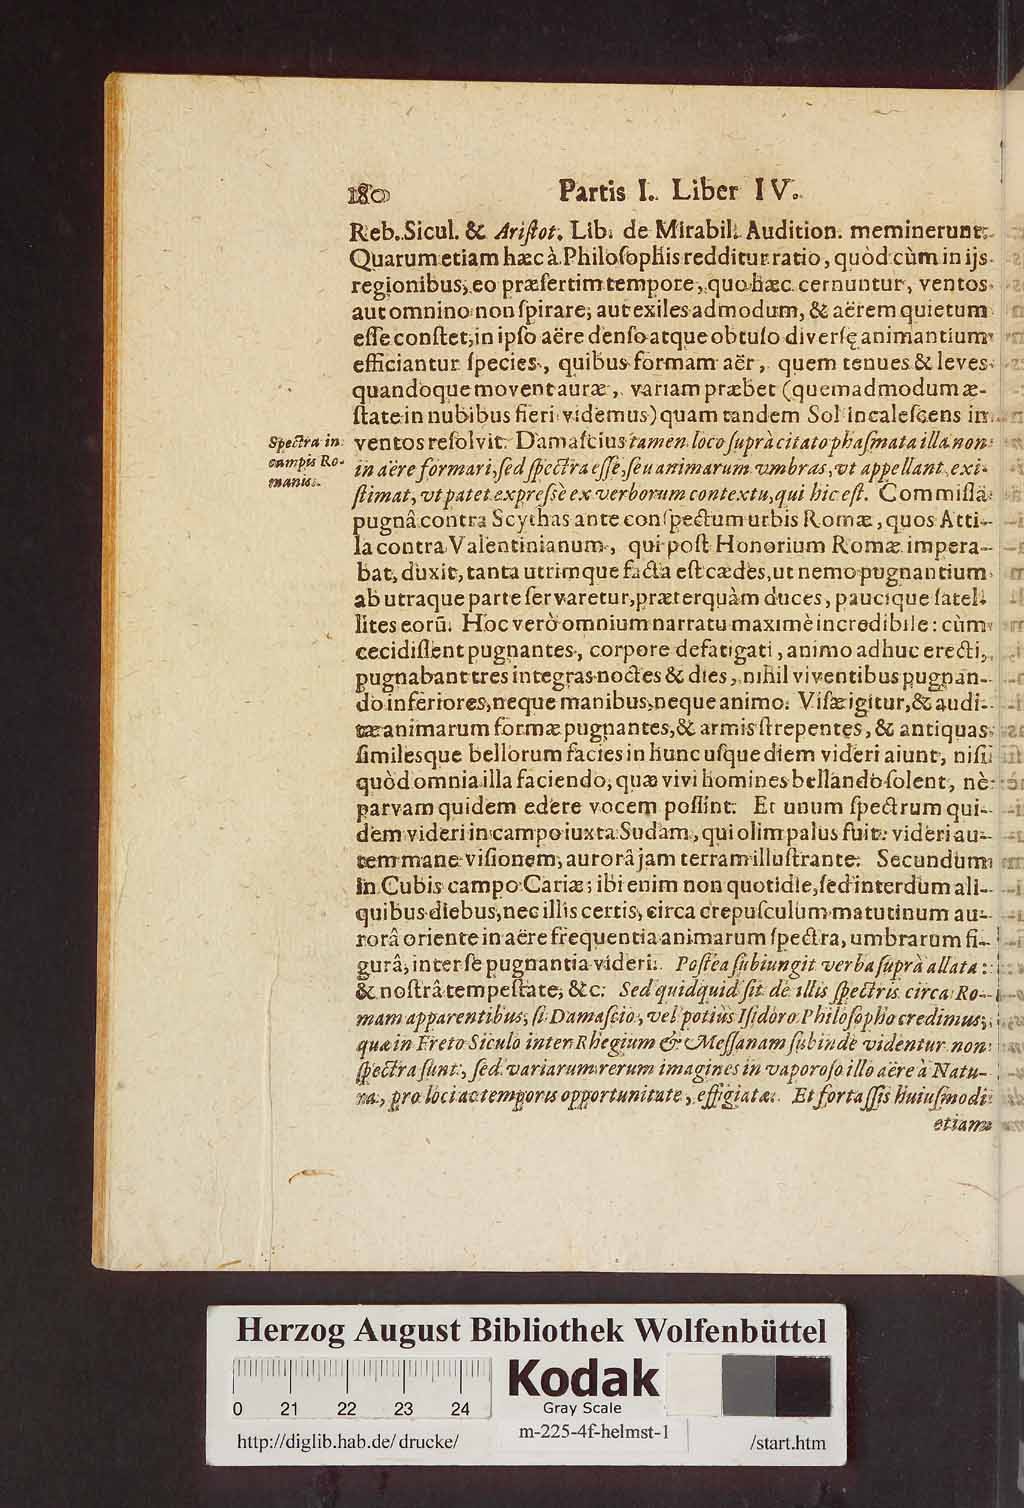 180 Partis I. Liber IV.
Reb. Sicul. & Aristot. Lib. de Mirabil. Audition. meminerunt.
Quarum etiam hæc à Philoſophis redditur ratio, quòd cùm in ijs
regionibus, eo præſertim tempore, quo hæc cernuntur, ventos
aut omnino non ſpirare, aut exiles admodum, & aërem quietum
eſſe conſtet, in ipſo aëre denſo atque obtuſo diverſę animantium
efficiantur ſpecies, quibus formam aër, quem tenues & leves
quandoque movent auræ, variam præbet (quemadmodum æ-
ſtate in nubibus fieri videmus) quam tandem Sol incaleſcens in
Spectra in
campis Ro-
manis.
ventos reſolvit. Damaſcius tamen loco ſuprà citato phaſmata illa non
in aëre formari, ſed ſpectra eſſe, ſeu animarum vmbras, vt appellant, exi-
ſtimat, vt patet expreſsè ex verborum contextu, qui hic eſt. Commiſſâ
pugnâ contra Scythas ante conſpectum urbis Romæ, quos Atti-
la contra Valentinianum, qui poſt Honorium Romæ impera-
bat, duxit, tanta utrimque facta eſt cædes, ut nemo pugnantium
ab utraque parte ſervaretur, præterquàm duces, paucique ſatel-
lites eorũ. Hoc verò omnium narratu maximè incredibile: cùm
cecidiſſent pugnantes, corpore defatigati, animo adhuc erecti,
pugnabant tres integras noctes & dies, nihil viventibus pugnan-
do inferiores, neque manibus, neque animo. Viſæ igitur, & audi-
tæ animarum formæ pugnantes, & armis ſtrepentes, & antiquas
ſimilesque bellorum facies in hunc uſque diem videri aiunt, niſi
quòd omnia illa faciendo, quæ vivi homines bellando ſolent, nè
parvam quidem edere vocem poſſint. Et unum ſpectrum qui-
dem videri in campo iuxta Sudam, qui olim palus fuit: videri au-
tem mane viſionem, aurorâ jam terram illuſtrante. Secundum
in Cubis campo Cariæ; ibi enim non quotidie, ſed interdum ali-
quibus diebus, nec illis certis, circa crepuſculum matutinum au-
rorâ oriente in aëre frequentia animarum ſpectra, umbrarum fi-
gurâ, inter ſe pugnantia videri. Poſtea ſubiungit verba ſuprà allata:
& noſtrâ tempeſtate, &c. Sed quidquid ſit de illis ſpectris circa Ro-
mam apparentibus, ſi Damaſcio, vel potiùs Iſidoro Philoſopho credimus,
quæ in Freto Siculo inter Rhegium & Meſſanam ſubinde videntur non
ſpectra ſunt, ſed variarum rerum imagines in vaporoſo illo aëre à Natu-
ra, pro loci ac temporis opportunitate, effigiatæ. Et fortaſſis huiuſmodi
etiam
Herzog August Bibliothek Wolfenbüttel
0 21 22 23 24
Kodak
Gray Scale
http://diglib.hab.de/drucke/
m-225-4f-helmst-1
/start.htm